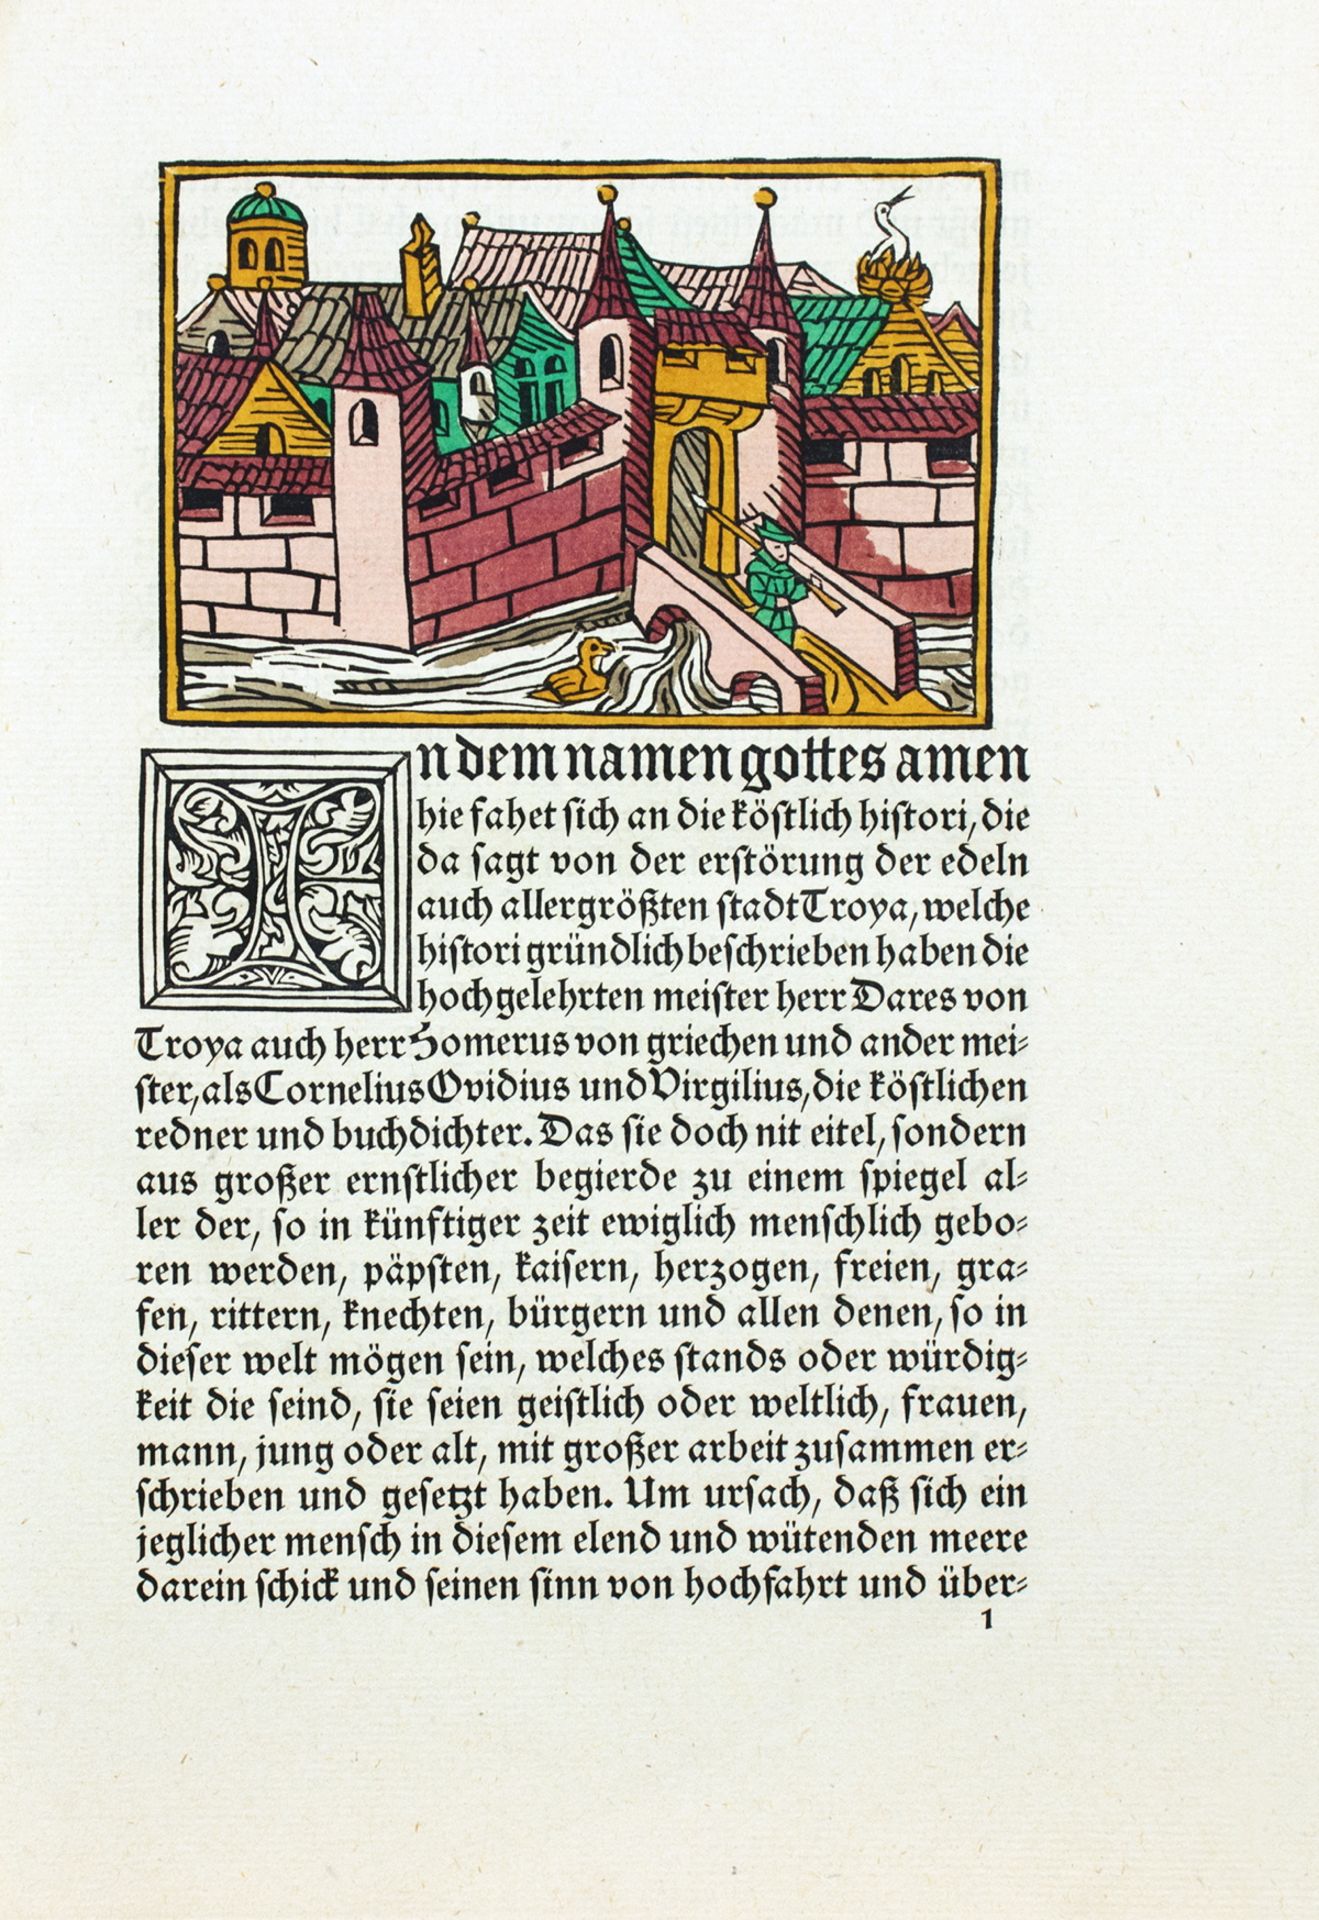 In dem namen gottes amen
hie fahet sich an die köstlich histori, die
da sagt von der erstörung der edeln
auch allergrößten stadt Troya, welche
histori gründlich beschrieben haben die
hochgelehrten meister herr Dares von
Troya auch herr Homerus von griechen und ander mei-
ster, als Cornelius Ovidius und Virgilius, die köstlichen
redner und buchdichter. Das sie doch nit eitel, sondern
aus großer ernstlicher begierde zu einem spiegel al-
ler der, so in künftiger zeit ewiglich menschlich gebo-
ren werden, päpsten, kaisern, herzogen, freien, gra-
fen, rittern, knechten, bürgern und allen denen, so in
dieser welt mögen sein, welches stands oder würdig-
keit die seind, sie seien geistlich oder weltlich, frauen,
mann, jung oder alt, mit großer arbeit zusammen er-
schrieben und gesetzt haben. Um ursach, daß sich ein
jeglicher mensch in diesem elend und wütenden meere
darein schick und seinen sinn von hochfahrt und über-
1